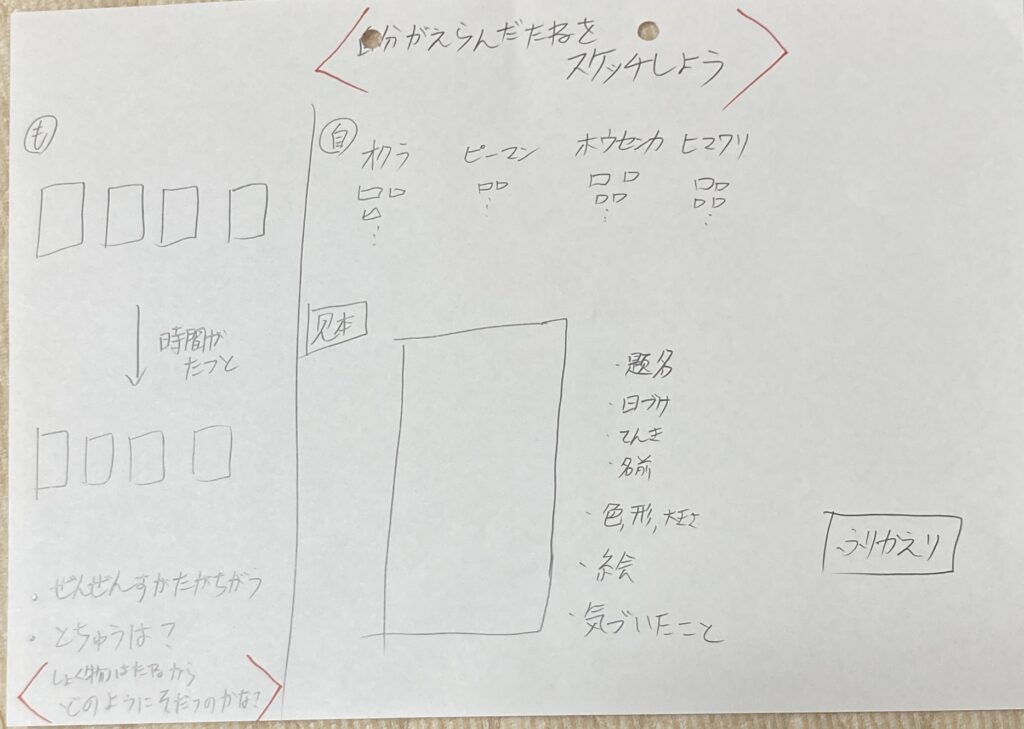 自分がえらんだたねを
スケッチしよう
も
時間が
たつと
・ぜんぜんすがたがちがう
・とちゅうは？
しょく物はたねから
どのようにそだつのかな？
自
オクラ ピーマン ホウセンカ ヒマワリ
見本
・題名
・日づけ
・てんき
・名前
・色,形,大きさ
・絵
・気づいたこと
ふりかえり